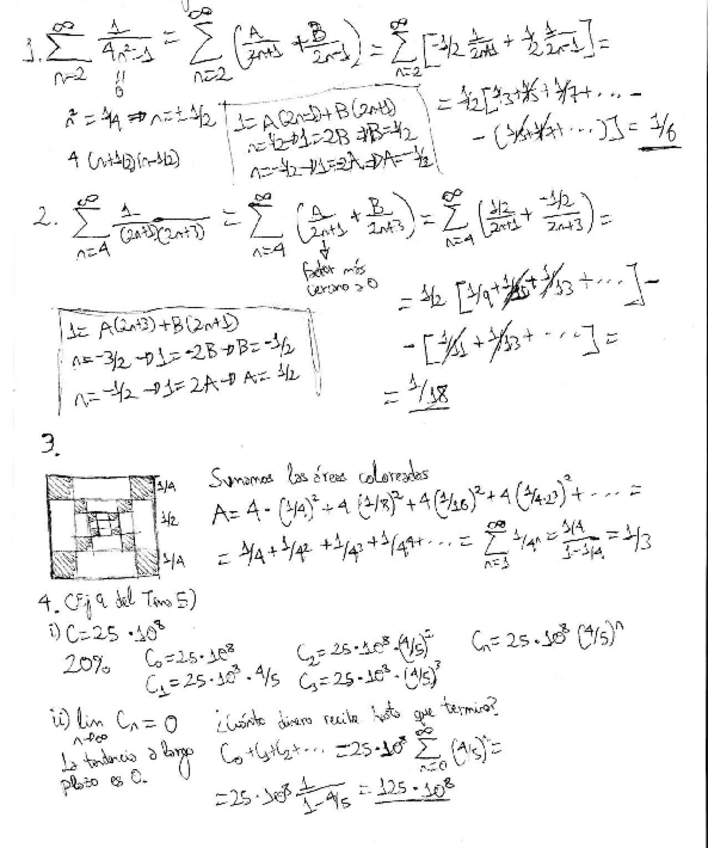 1. ∑_{n=2}^{∞} 1/(4n²-1) = ∑_{n=2}^{∞} (A/(2n+1) + B/(2n-1)) = ∑_{n=2}^{∞} [-1/2 1/(2n+1) + 1/2 1/(2n-1)] =
|| 0
n² = 1/4 ⇒ n = ± 1/2
4 (n+1/2)(n-1/2)
1 = A(2n-1) + B(2n+1)
n = 1/2 → 1 = 2B ⇒ B = 1/2
n = -1/2 → 1 = -2A ⇒ A = -1/2
= 1/2 [1/3 + 1/5 + 1/7 + ... -
- (1/5 + 1/7 + ...)] = 1/6
2. ∑_{n=4}^{∞} 1/((2n+1)(2n+3)) = ∑_{n=4}^{∞} (A/(2n+1) + B/(2n+3)) = ∑_{n=4}^{∞} ((1/2)/(2n+1) + (-1/2)/(2n+3)) =
factor más
cercano a 0
1 = A(2n+3) + B(2n+1)
n = -3/2 → 1 = -2B → B = -1/2
n = -1/2 → 1 = 2A → A = 1/2
= 1/2 [1/9 + 1/11 + 1/13 + ...] -
- [1/11 + 1/13 + ...] =
= 1/18
3.
1/4
1/2
1/4
Sumamos las áreas coloreadas
A = 4 · (1/4)² + 4 (1/8)² + 4 (1/16)² + 4 (1/4·2³)² + ... =
= 1/4 + 1/4² + 1/4³ + 1/4⁴ + ... = ∑_{n=1}^{∞} 1/4ⁿ = (1/4)/(1-1/4) = 1/3
4. (Ej 9 del Tema 5)
i) C = 25 · 10⁸
20% C₀ = 25 · 10⁸ C₂ = 25 · 10⁸ · (4/5)² Cₙ = 25 · 10⁸ (4/5)ⁿ
C₁ = 25 · 10⁸ · 4/5 C₃ = 25 · 10⁸ · (4/5)³
ii) lim_{n→∞} Cₙ = 0 ¿Cuánto dinero recibe hasta que termina?
La tendencia a largo
plazo es 0.
C₀ + C₁ + C₂ + ... = 25 · 10⁸ ∑_{n=0}^{∞} (4/5)ⁿ =
= 25 · 10⁸ 1/(1-4/5) = 125 · 10⁸